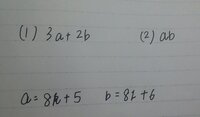 (1) 3a+2b (2) ab
a=8k+5 b=8l+6